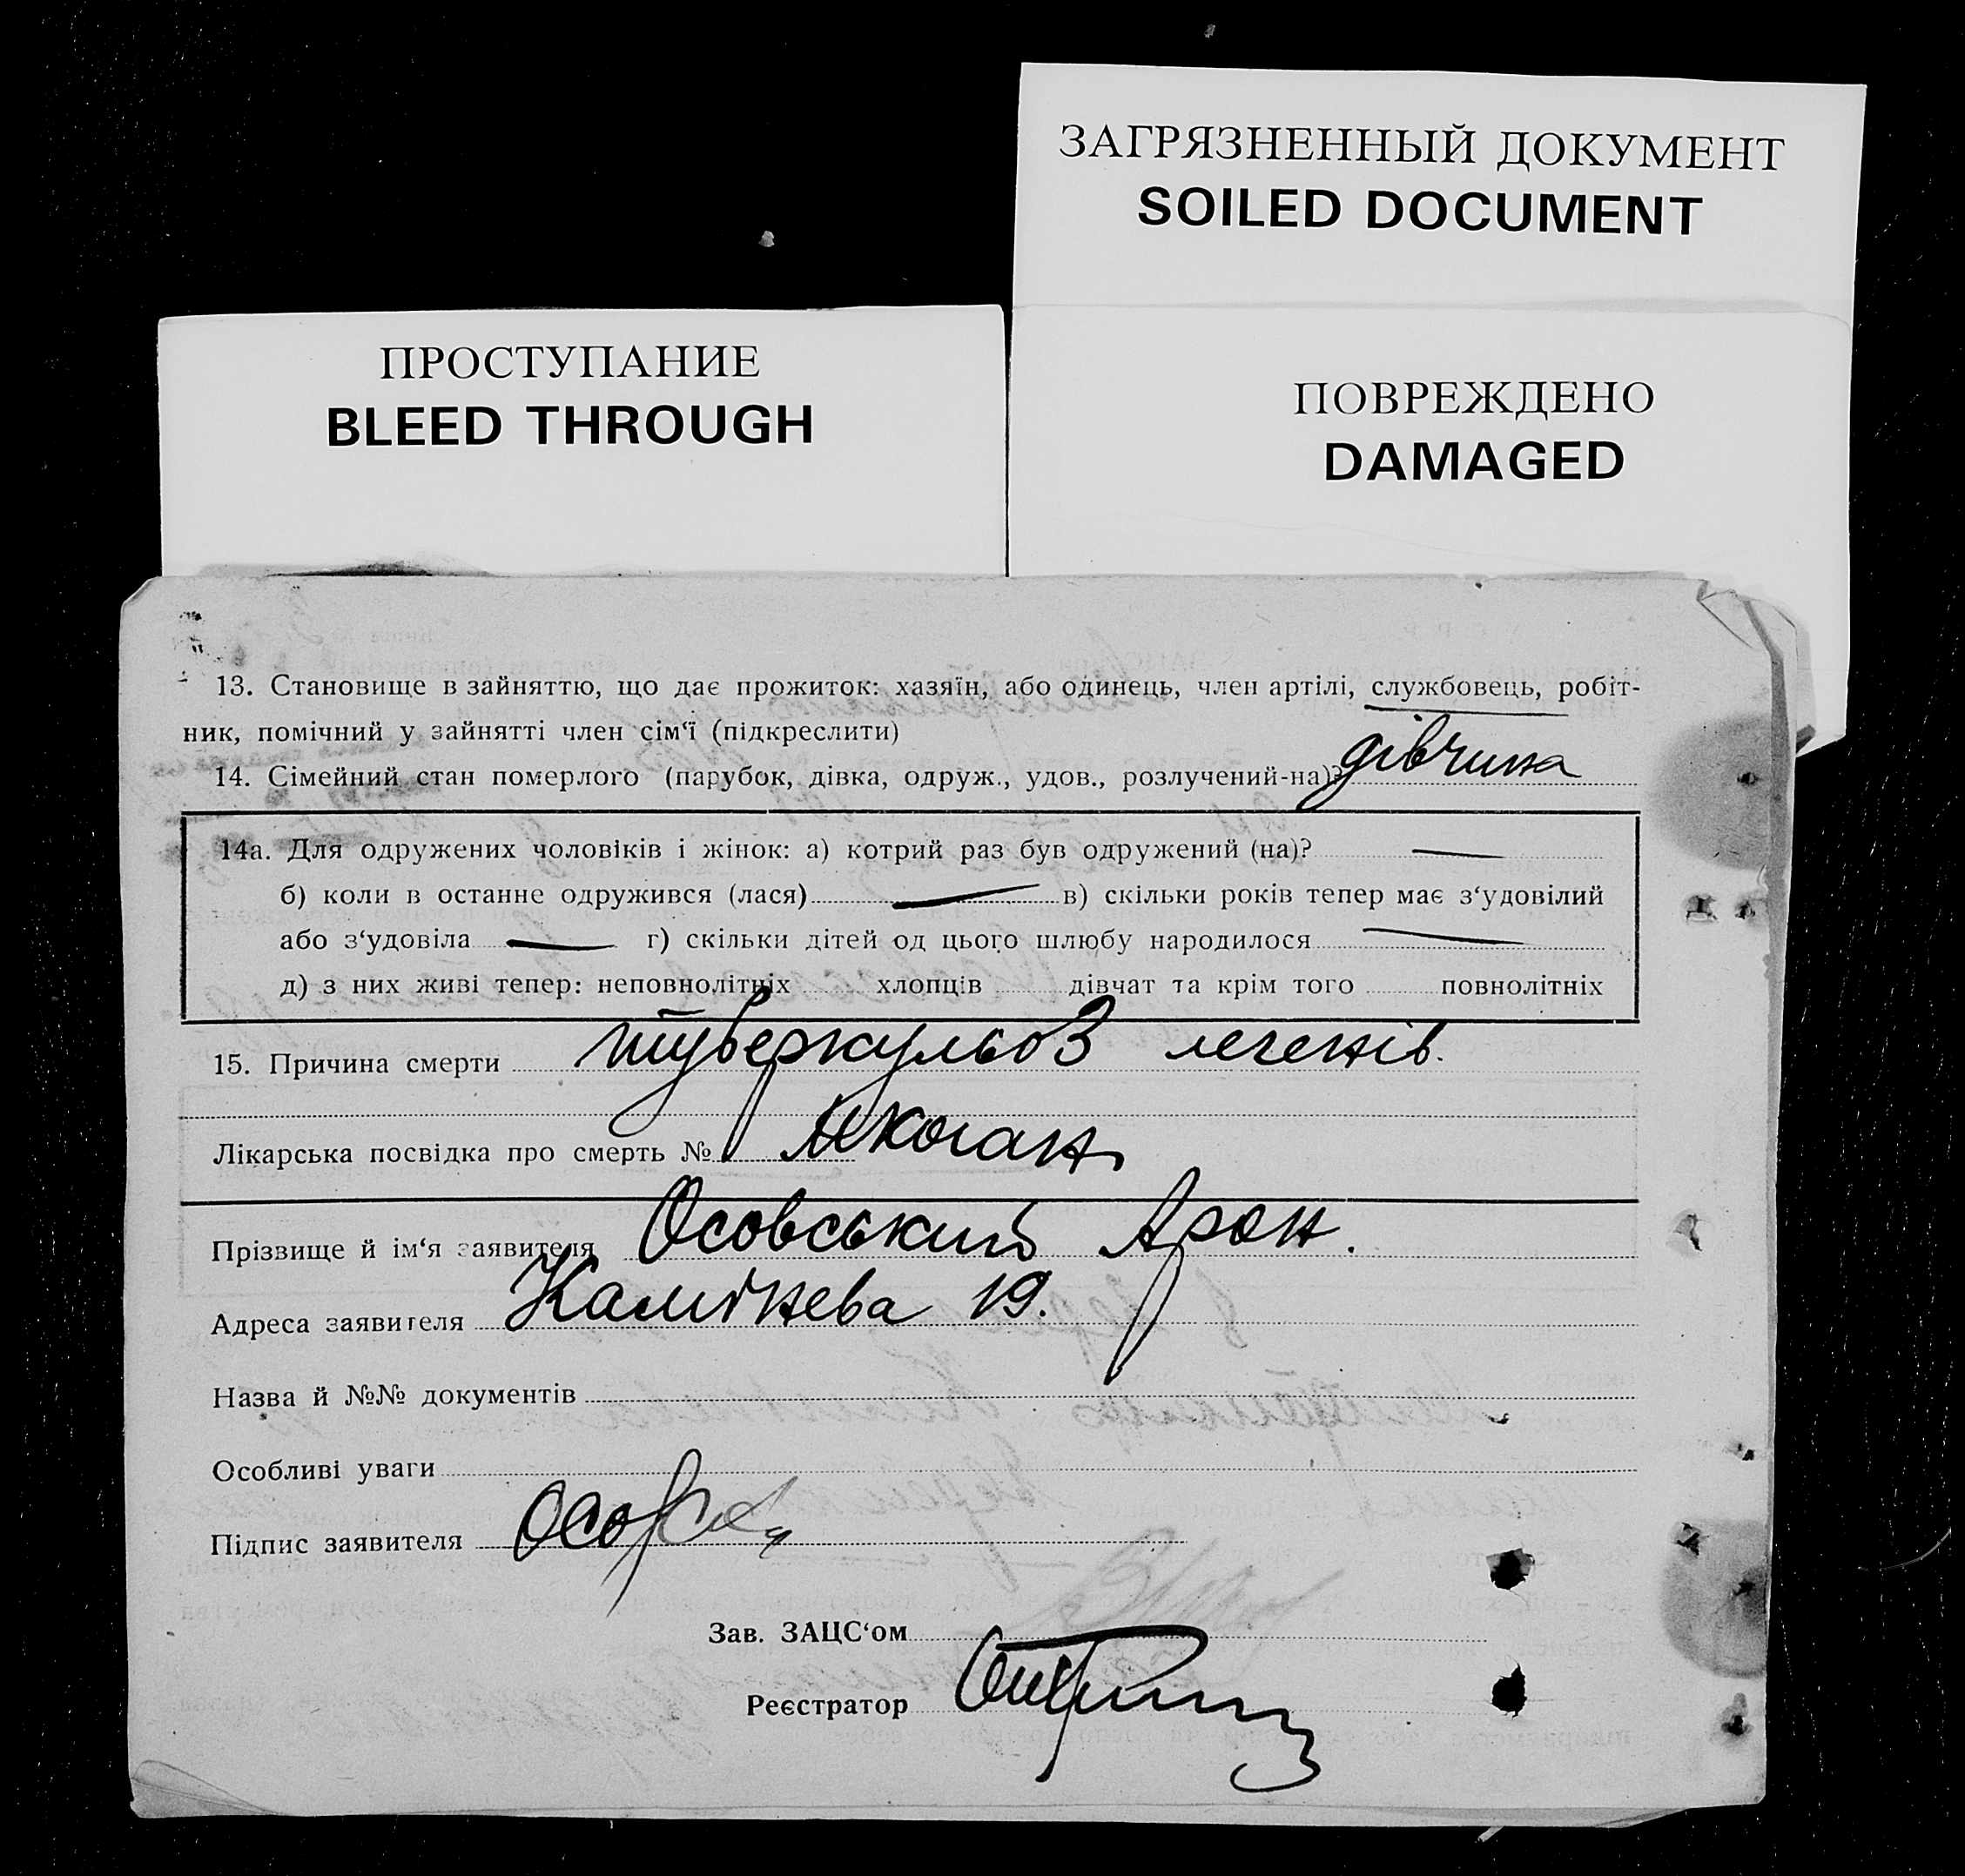 ЗАГРЯЗНЕННЫЙ ДОКУМЕНТ
SOILED DOCUMENT
ПРОСТУПАНИЕ
BLEED THROUGH
ПОВРЕЖДЕНО
DAMAGED
13. Становище в зайняттю, що дає прожиток: хазяїн, або одинець, член артілі, службовець, робіт-
ник, помічний у зайнятті член сім‘ї (підкреслити)
14. Сімейний стан померлого (парубок, дівка, одруж., удов., розлучений-на)? дівчина
14а. Для одружених чоловіків і жінок: а) котрий раз був одружений (на)? —
б) коли в останне одружився (лася) — в) скільки років тепер має з‘удовілий
або з‘удовіла — г) скільки дітей од цього шлюбу народилося —
д) з них живі тепер: неповнолітніх хлопців дівчат та крім того повнолітніх
15. Причина смерти туберкульоз легенів.
Лікарська посвідка про смерть №
Прізвище й ім‘я заявителя Осовський Арон.
Адреса заявителя 19.
Назва й №№ документів
Особливі уваги
Підпис заявителя
Зав. ЗАЦС‘ом
Реєстратор